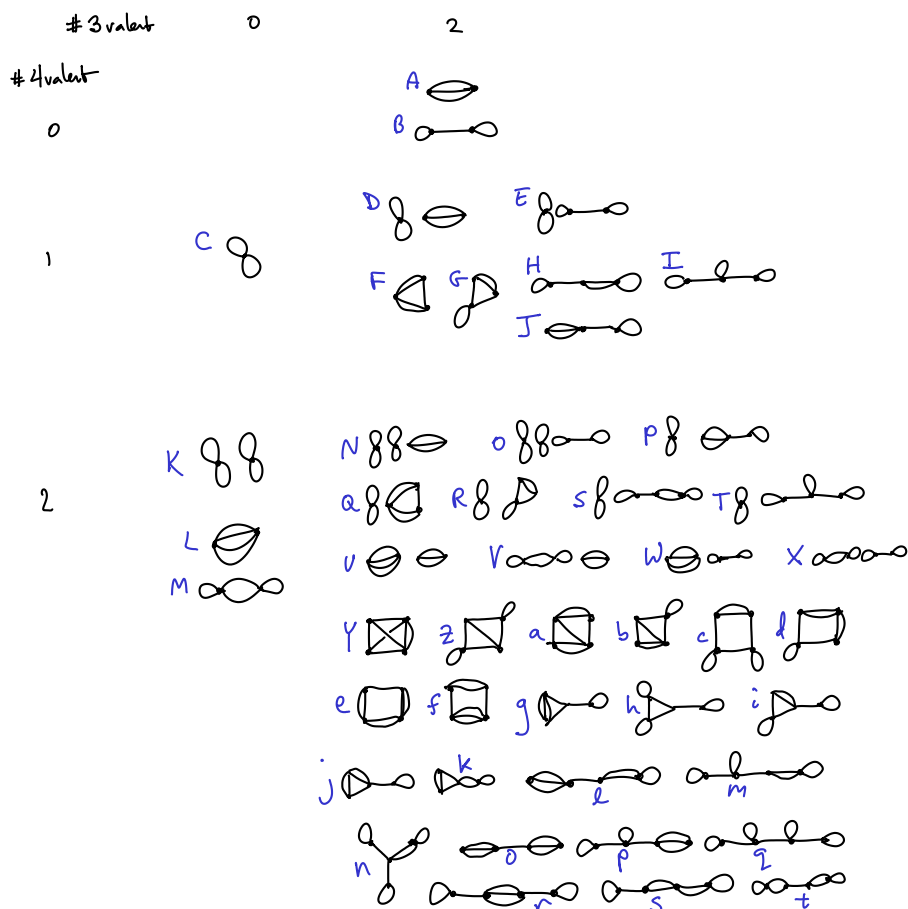 #3 valent 0 2
#4 valent
A
0 B
D E
1 C
F G H I
J
K N O P
2 Q R S T
L U V W X
M
Y Z a b c d
e f g h i
j k l m
n o p q
r s t